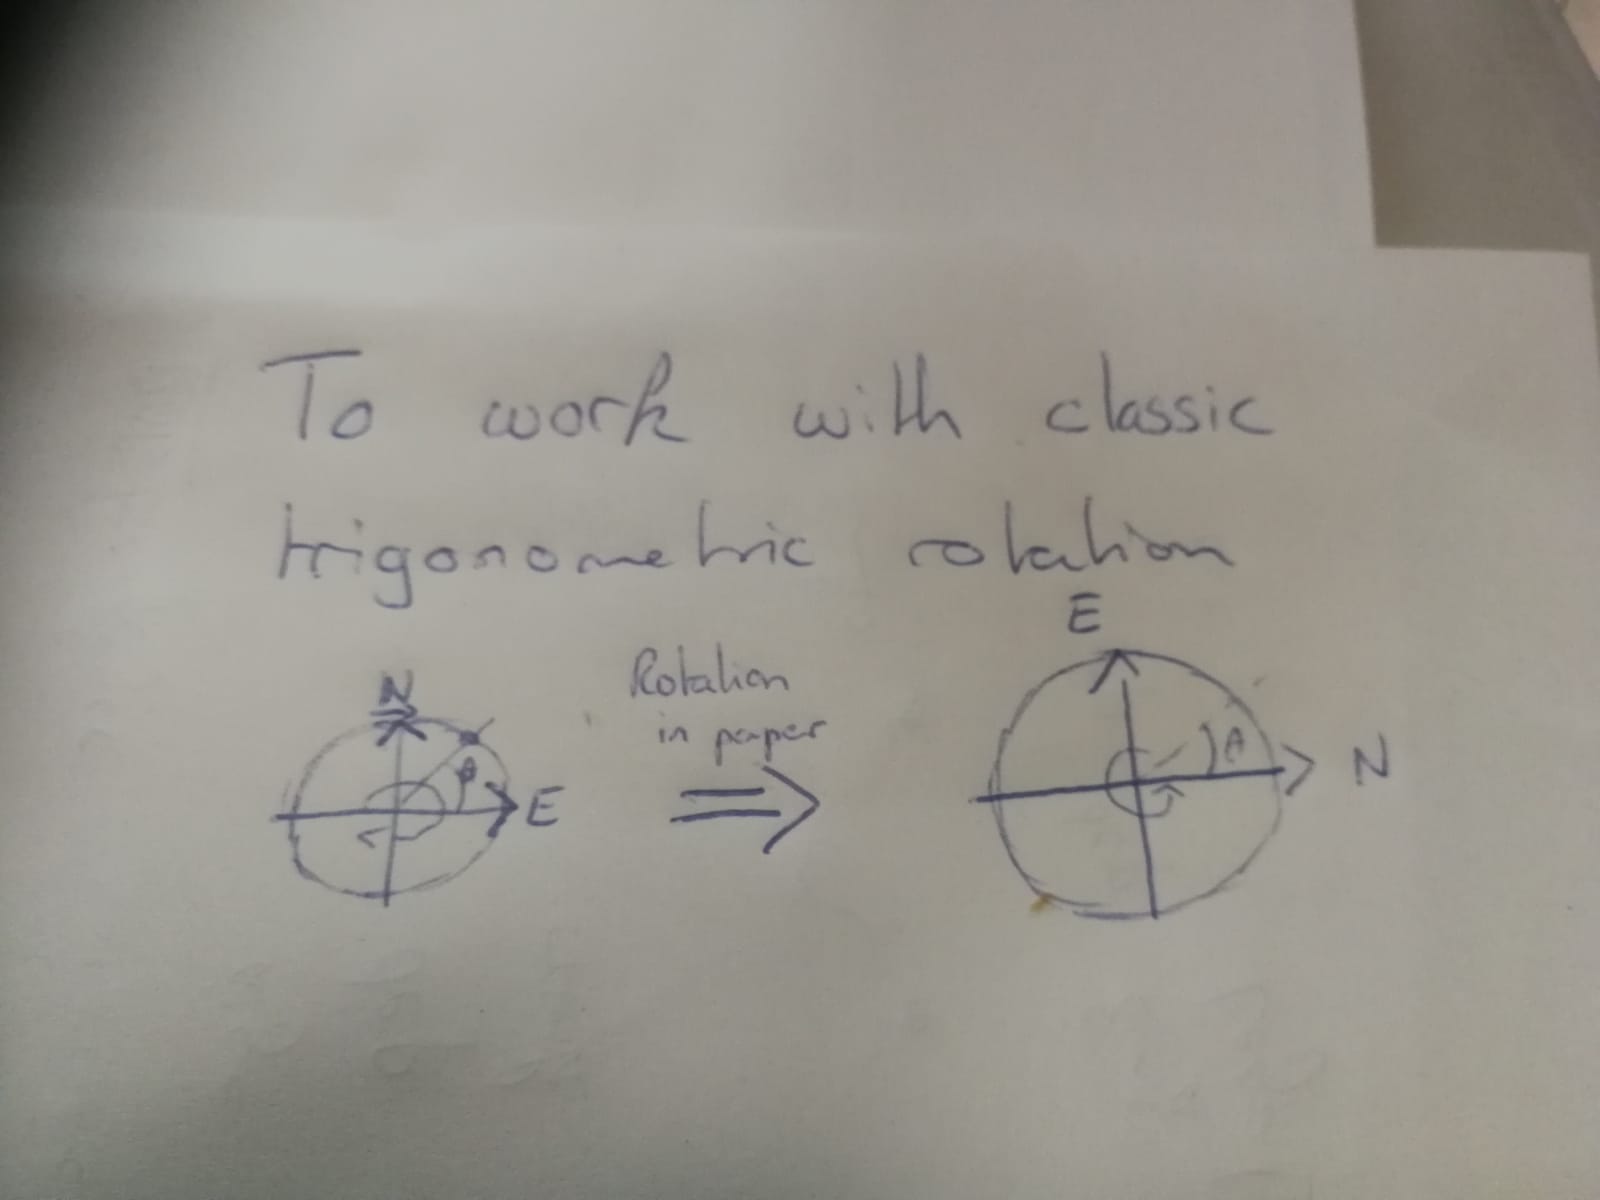 To work with classic
trigonometric rotation
E
N
Rotation
in paper
A
E
A
N